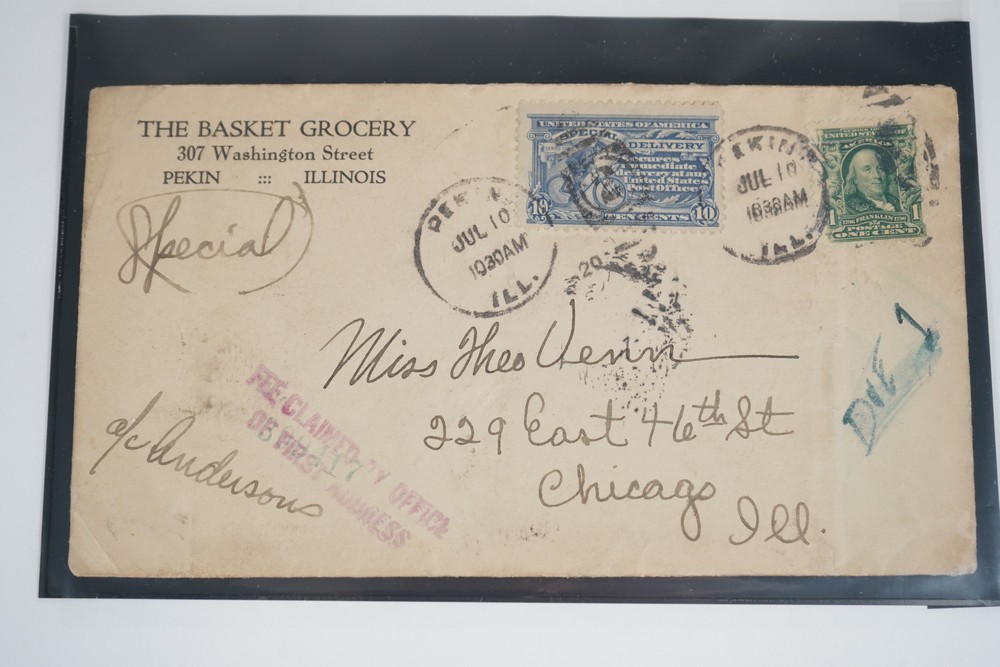 THE BASKET GROCERY
307 Washington Street
PEKIN ::: ILLINOIS
Special
UNITED STATES OF AMERICA
SPECIAL DELIVERY
Secures
immediate
delivery at any
United States
Post Office
10 TEN CENTS 10
JUL 10
1030AM
ILL.
PEKIN
JUL 10
1030AM
ILL.
UNITED STATES OF
AMERICA
1 FRANKLIN 1
POSTAGE
ONE CENT
20
Miss Theo Venn
229 East 46th St
Chicago
Ill.
c/o Andersons
FEE CLAIMED BY OFFICE
OF FIRST ADDRESS
DUE 1